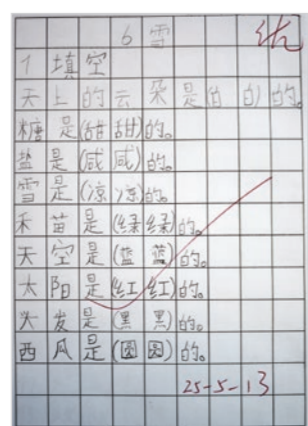 6 雪
优
1 填空
天上的云朵是(白白)的。
糖是(甜甜)的。
盐是(咸咸)的。
雪是(凉凉)的。
禾苗是(绿绿)的。
天空是(蓝蓝)的。
太阳是(红红)的。
头发是(黑黑)的。
西瓜是(圆圆)的。
25-5-13